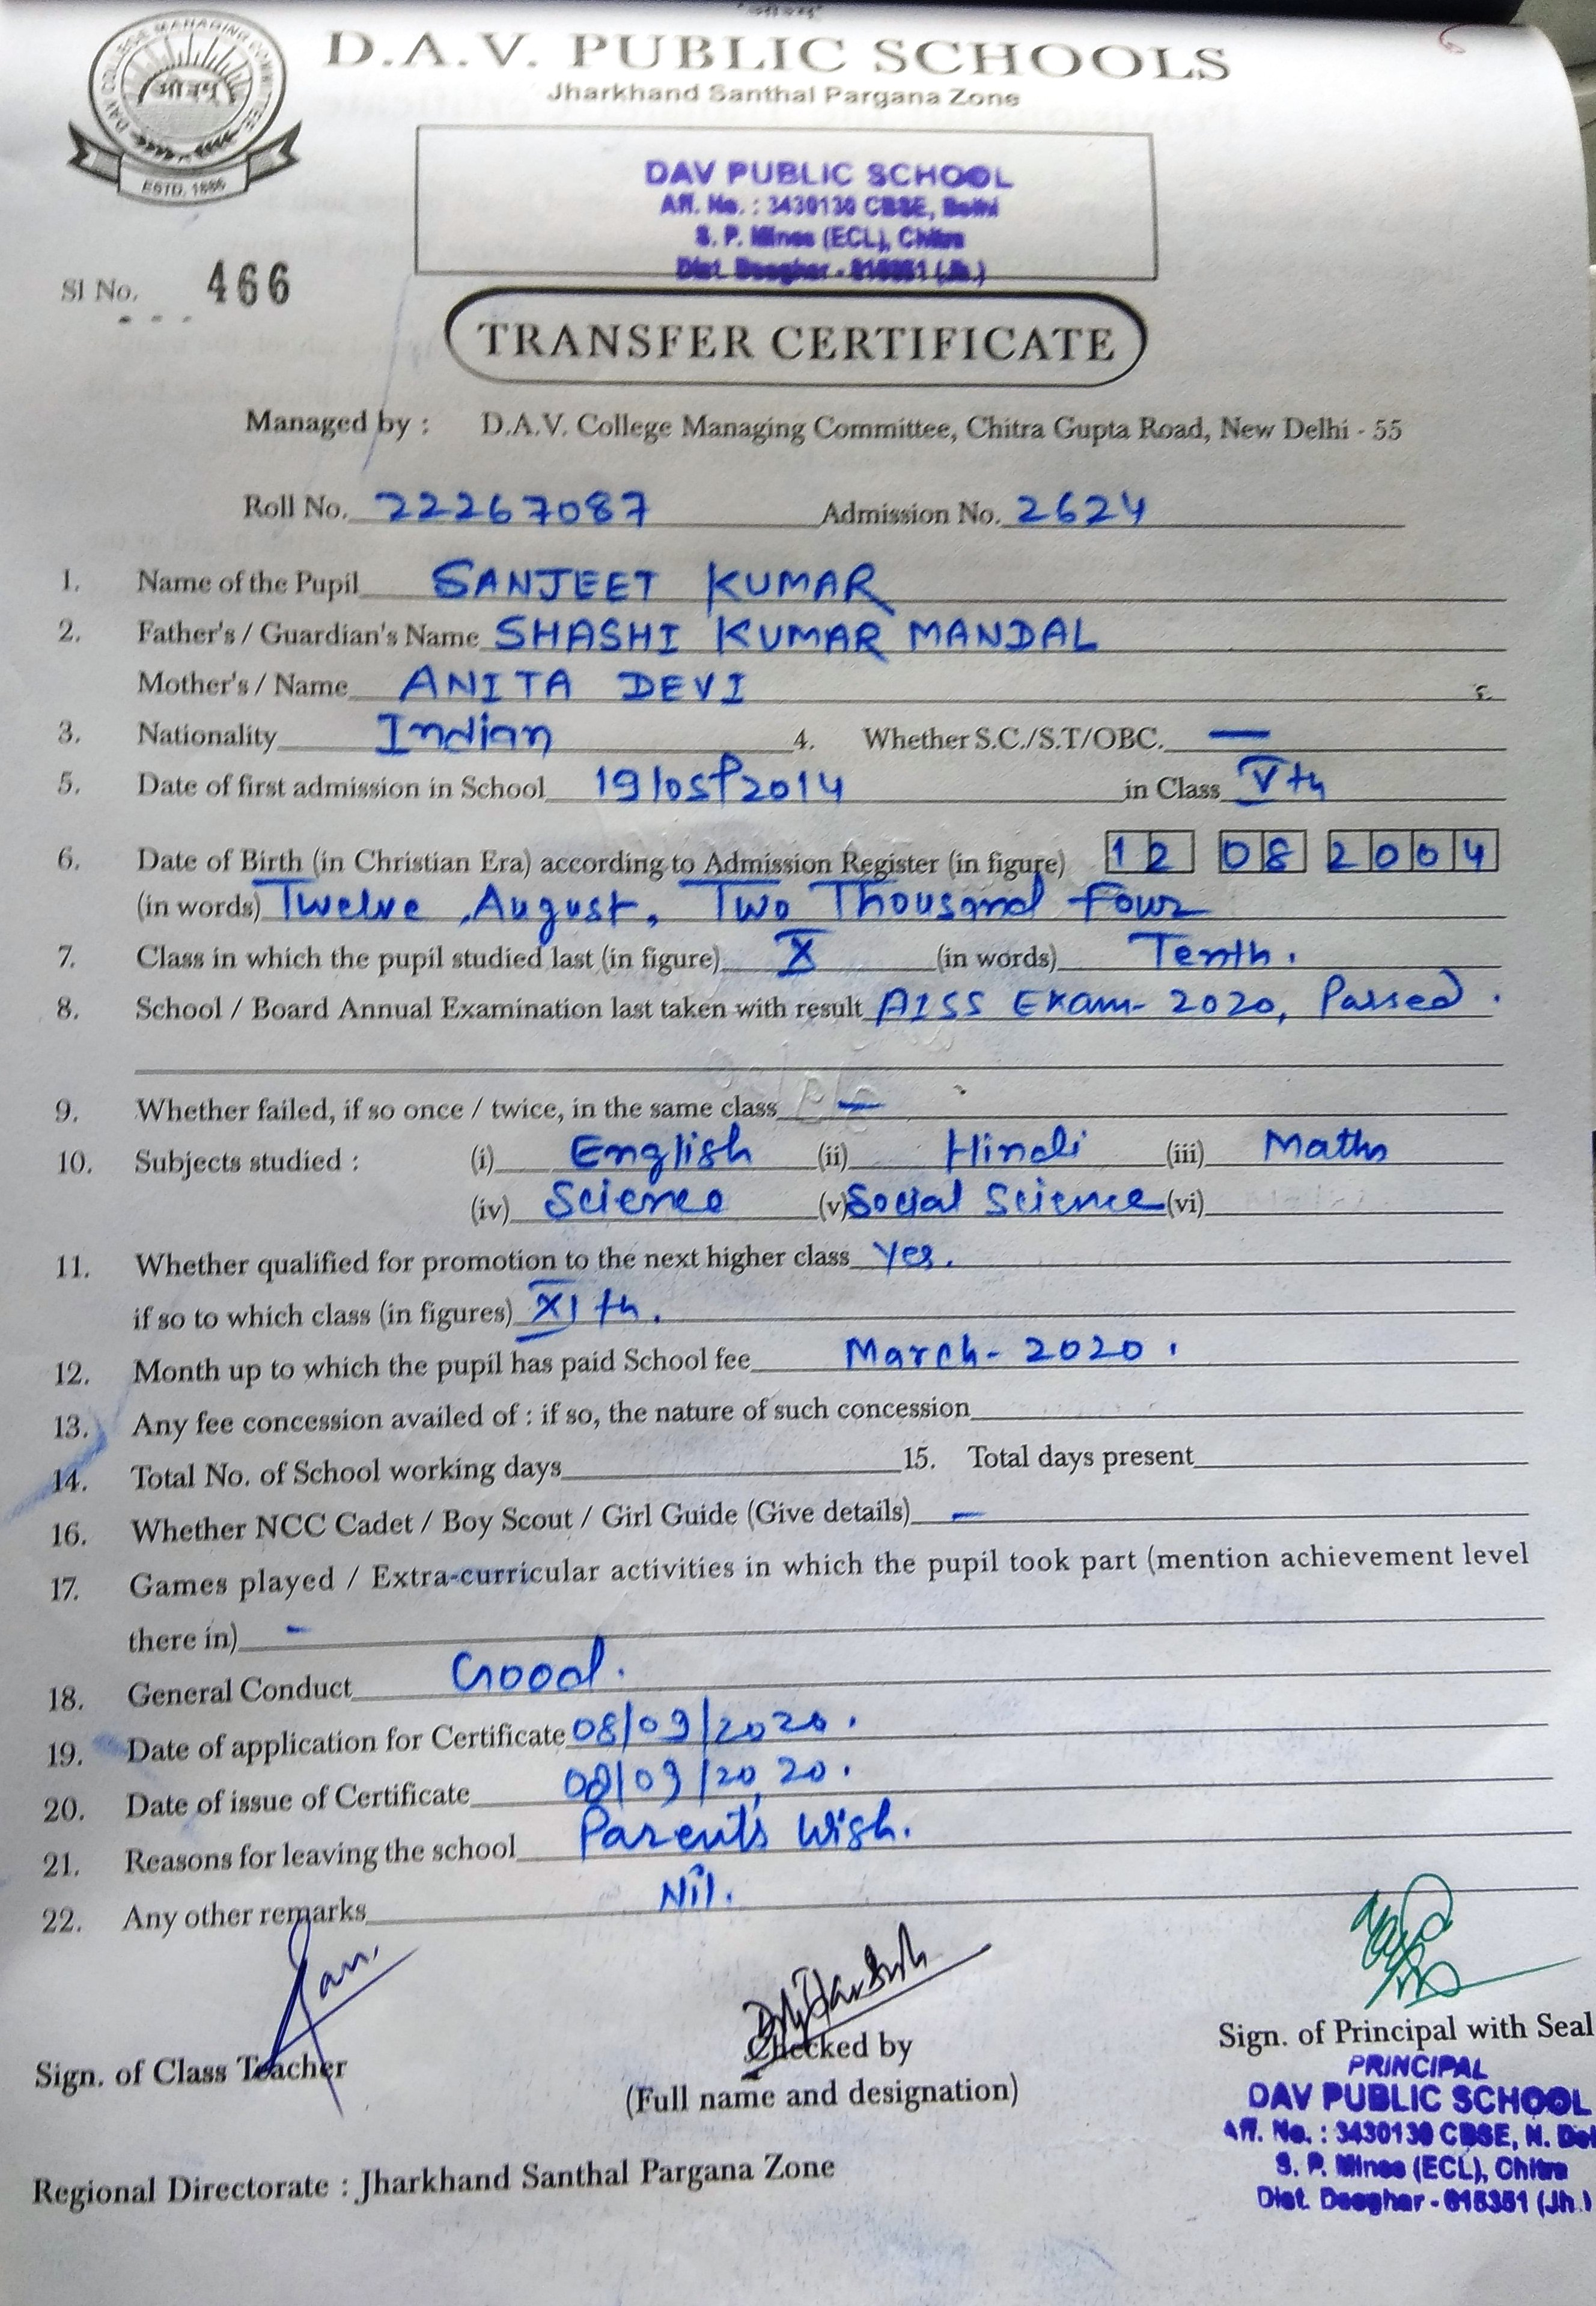 DAV COLLEGE MANAGING COMMITTEE
ओ३म्
ESTD. 1886
D.A.V. PUBLIC SCHOOLS
Jharkhand Santhal Pargana Zone
DAV PUBLIC SCHOOL
Aff. No. : 3430130 CBSE, Delhi
S. P. Mines (ECL), Chitra
Dist. Deoghar - 815351 (Jh.)
Sl No. 466
TRANSFER CERTIFICATE
Managed by : D.A.V. College Managing Committee, Chitra Gupta Road, New Delhi - 55
Roll No. 22267087 Admission No. 2624
1. Name of the Pupil SANJEET KUMAR
2. Father's / Guardian's Name SHASHI KUMAR MANDAL
Mother's / Name ANITA DEVI
3. Nationality Indian 4. Whether S.C./S.T/OBC. —
5. Date of first admission in School 19/05/2014 in Class Vth
6. Date of Birth (in Christian Era) according to Admission Register (in figure) 12 08 2004
(in words) Twelve, August, Two Thousand Four
7. Class in which the pupil studied last (in figure) X (in words) Tenth.
8. School / Board Annual Examination last taken with result AISS Exam- 2020, Passed.
9. Whether failed, if so once / twice, in the same class —
10. Subjects studied : (i) English (ii) Hindi (iii) Maths
(iv) Science (v) Social Science (vi)
11. Whether qualified for promotion to the next higher class Yes.
if so to which class (in figures) XIth.
12. Month up to which the pupil has paid School fee March- 2020.
13. Any fee concession availed of : if so, the nature of such concession
14. Total No. of School working days 15. Total days present
16. Whether NCC Cadet / Boy Scout / Girl Guide (Give details) —
17. Games played / Extra-curricular activities in which the pupil took part (mention achievement level
there in) -
18. General Conduct Good.
19. Date of application for Certificate 08/09/2020.
20. Date of issue of Certificate 08/09/2020.
21. Reasons for leaving the school Parent's Wish.
22. Any other remarks Nil.
Sign. of Class Teacher
Checked by
(Full name and designation)
Sign. of Principal with Seal
PRINCIPAL
DAV PUBLIC SCHOOL
Aff. No. : 3430130 CBSE, N. Del
S. P. Mines (ECL), Chitra
Dist. Deoghar - 815351 (Jh.)
Regional Directorate : Jharkhand Santhal Pargana Zone